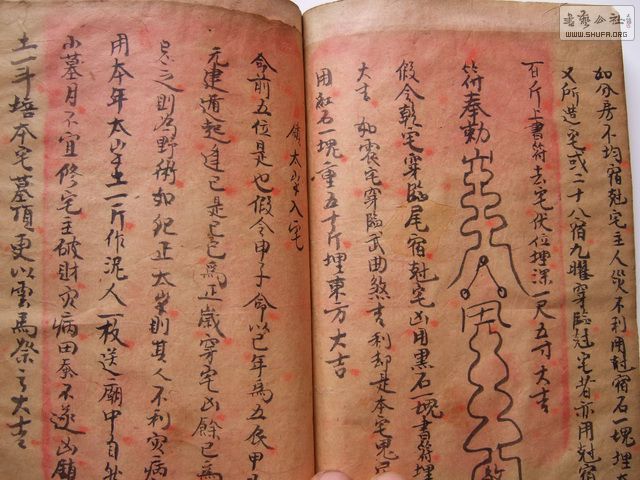 如分房不均宿尅宅主人災不利用尅宿石一塊埋
又所造宅或二十八宿九曜穿臨尅宅者亦用尅宿
百斤上書符去宅伏位埋深一尺五寸大吉
符奉勅
假令乾宅穿臨尾宿尅宅凶用黑石一塊書符埋
大吉 如震宅穿臨武曲煞吉利却是本宅鬼
用紅石一塊重五十斤埋東方大吉
鎮太歲入宅
命前五位是也假令甲子命以己年為五辰甲
元建遁起逢己是己巳為正歲穿宅凶餘巳為
忌之則為野術如犯正太歲則其人不利灾病
用本年太歲土一斤作泥人一枚送廟中自然
小墓月不宜修宅主破財灾病田蚕不遂凶鎮
土一斗培本宅墓頂更以雲馬祭之大吉
書藝公社
WWW.SHUFA.ORG